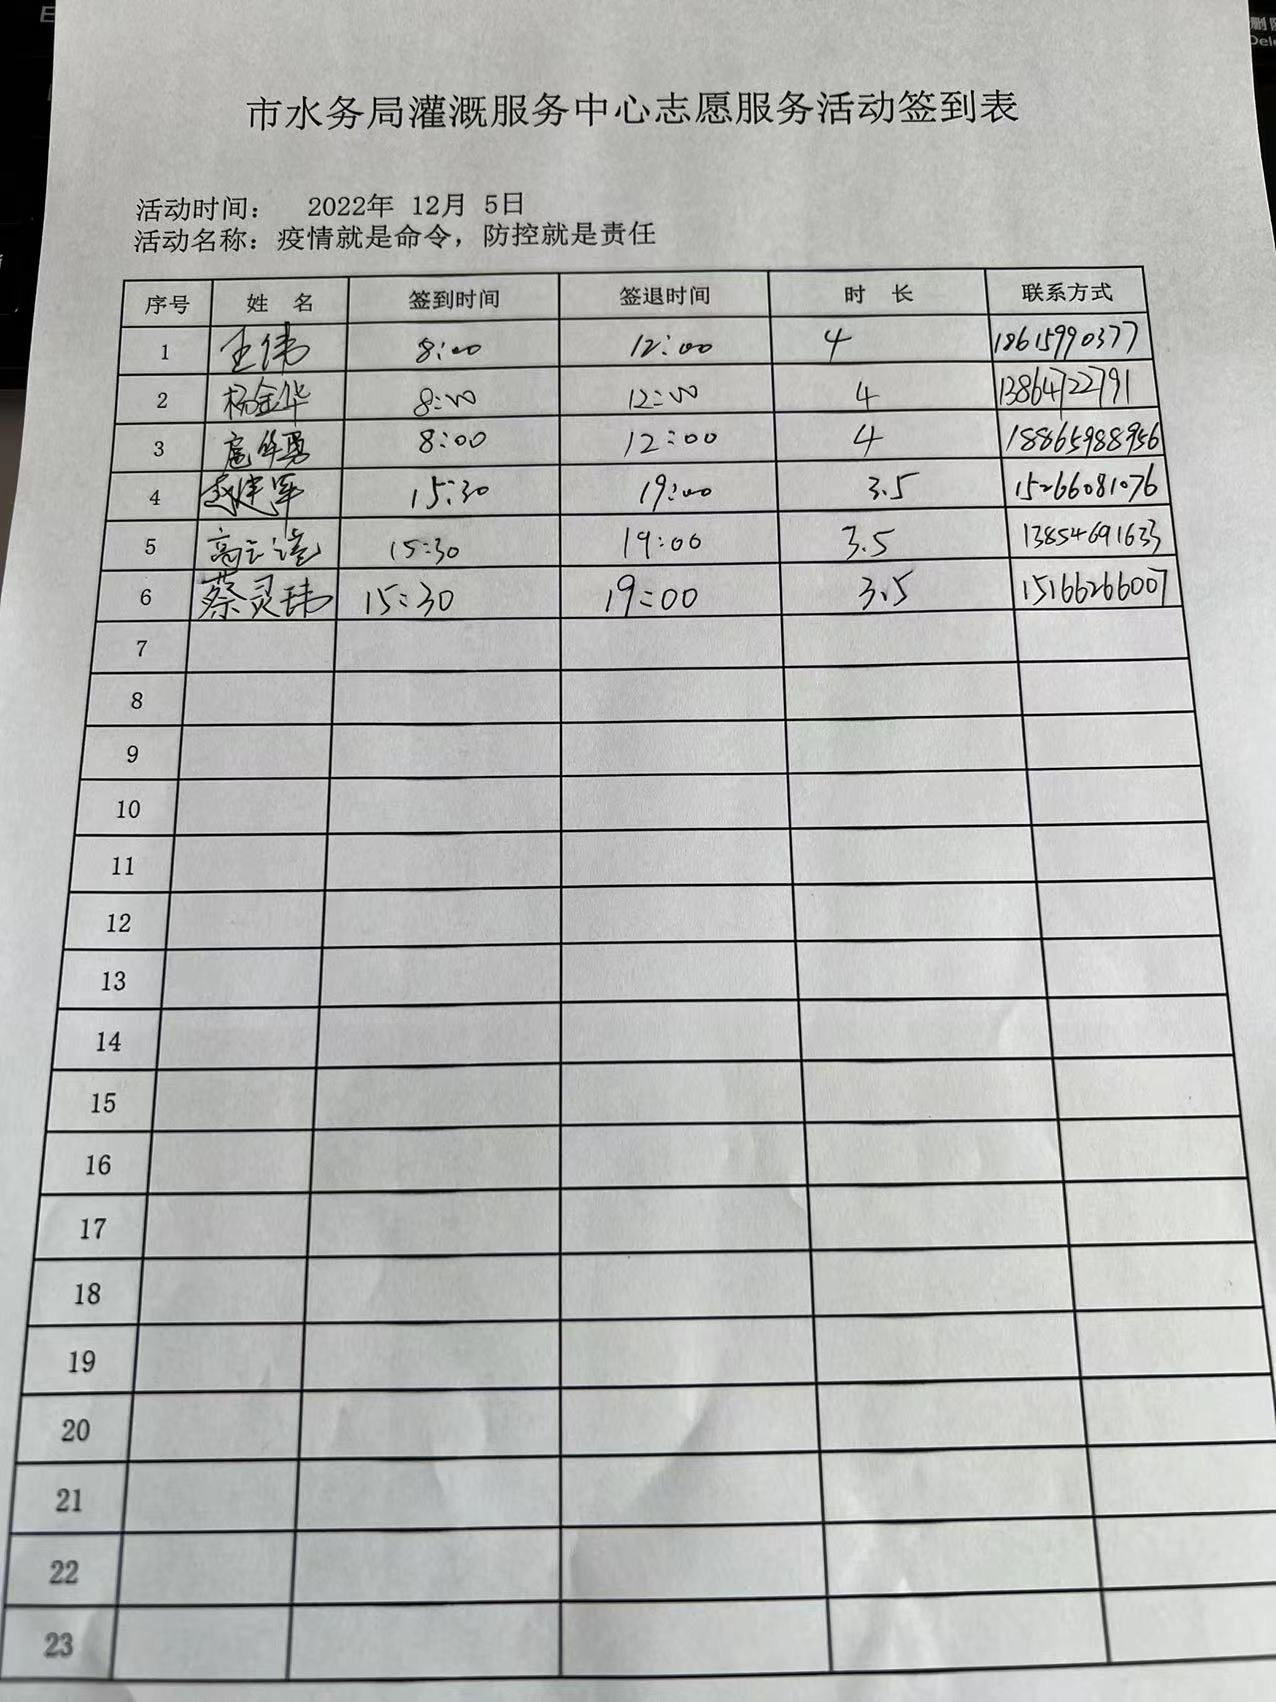 市水务局灌溉服务中心志愿服务活动签到表
活动时间： 2022年 12月 5日
活动名称：疫情就是命令，防控就是责任
序号 姓 名 签到时间 签退时间 时 长 联系方式
1 王伟 8:00 12:00 4 18615990377
2 杨金华 8:00 12:00 4 13864722791
3 8:00 12:00 4 18865988956
4 赵建军 15:30 19:00 3.5 15266081076
5 15:30 19:00 3.5 13854691633
6 蔡灵玮 15:30 19:00 3.5 15166266007
7
8
9
10
11
12
13
14
15
16
17
18
19
20
21
22
23